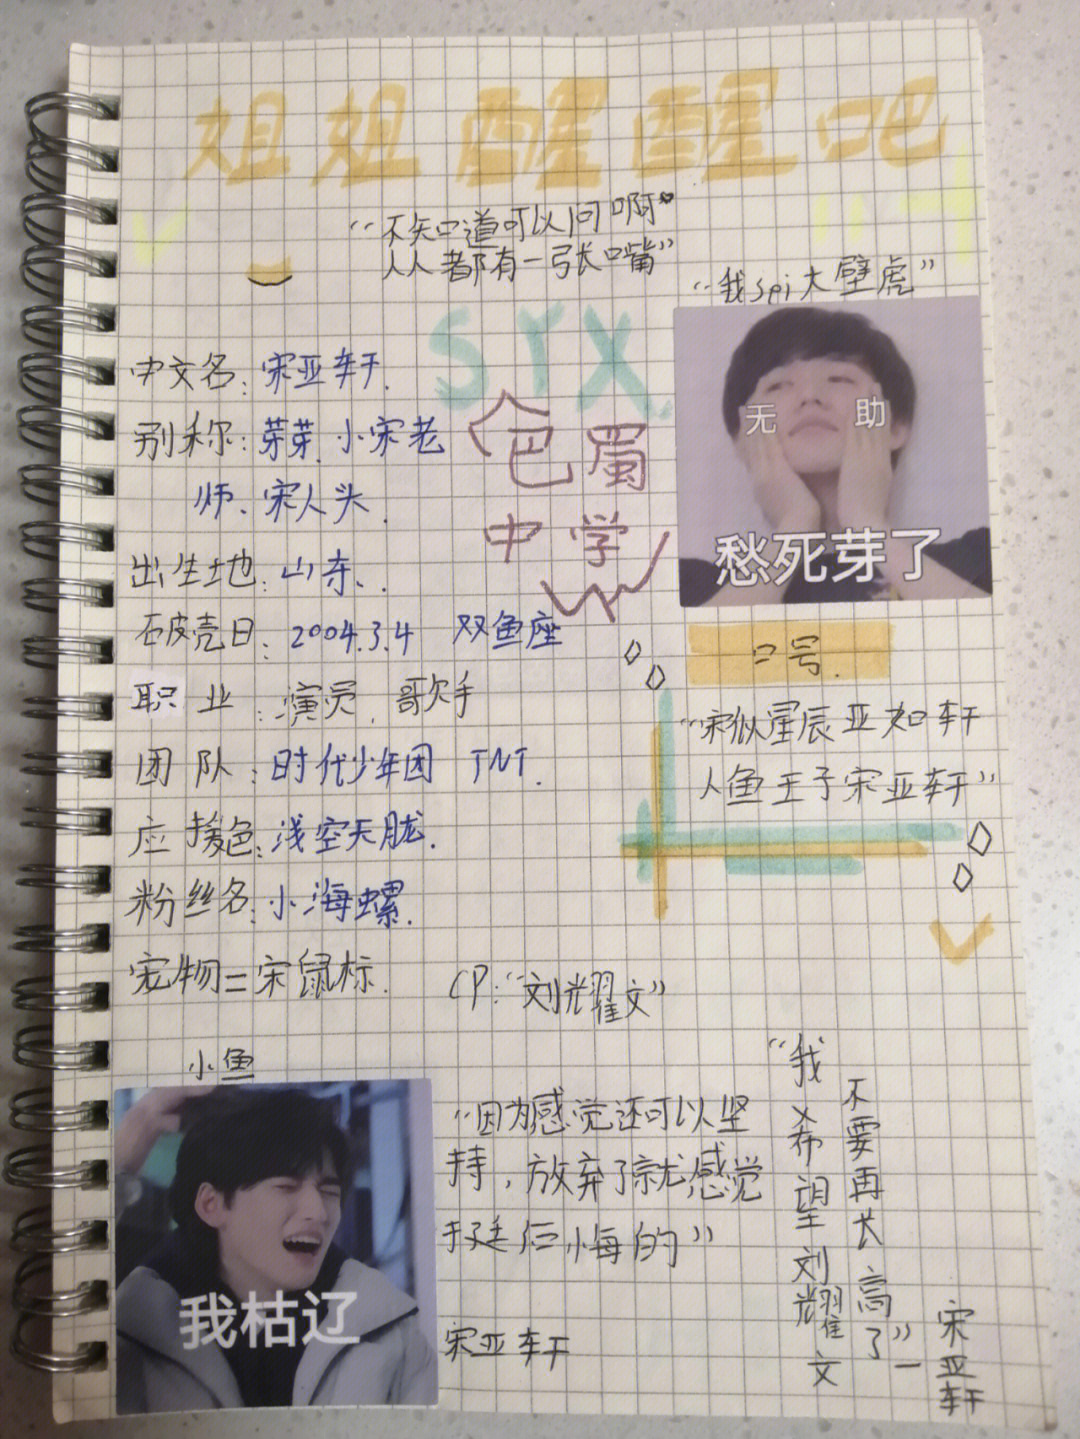 姐姐醒醒吧
“不知道可以问啊
人人都有一张嘴”
“我spi大壁虎”
SYX
无 助
愁死芽了
中文名：宋亚轩.
别称：芽芽、小宋老
师、宋人头.
巴蜀
中学
出生地：山东、.
破壳日：2004.3.4 双鱼座
职业：演员、歌手
团队：时代少年团 TNT.
应援色：浅空天胧.
粉丝名：小海螺.
宠物=宋鼠标.
口号.
“宋似星辰亚如轩
人鱼王子宋亚轩”
CP：“刘耀文”
小鱼
我枯辽
“因为感觉还可以坚
持，放弃了就感觉
挺后悔的”
宋亚轩
“我希望刘耀文
不要再长高了”一
宋亚轩